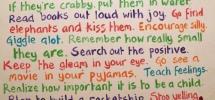 if they're crabby, put them in water.
Read books out loud with joy. Go find
elephants and kiss them. Encourage silly.
Giggle alot. Remember how really small
they are. Search out the positive.
Keep the gleam in your eye. Go see a
movie in your pyjamas. Teach feelings.
Realize how important it is to be a child.
Plan to build a rocketship. Stop yelling.